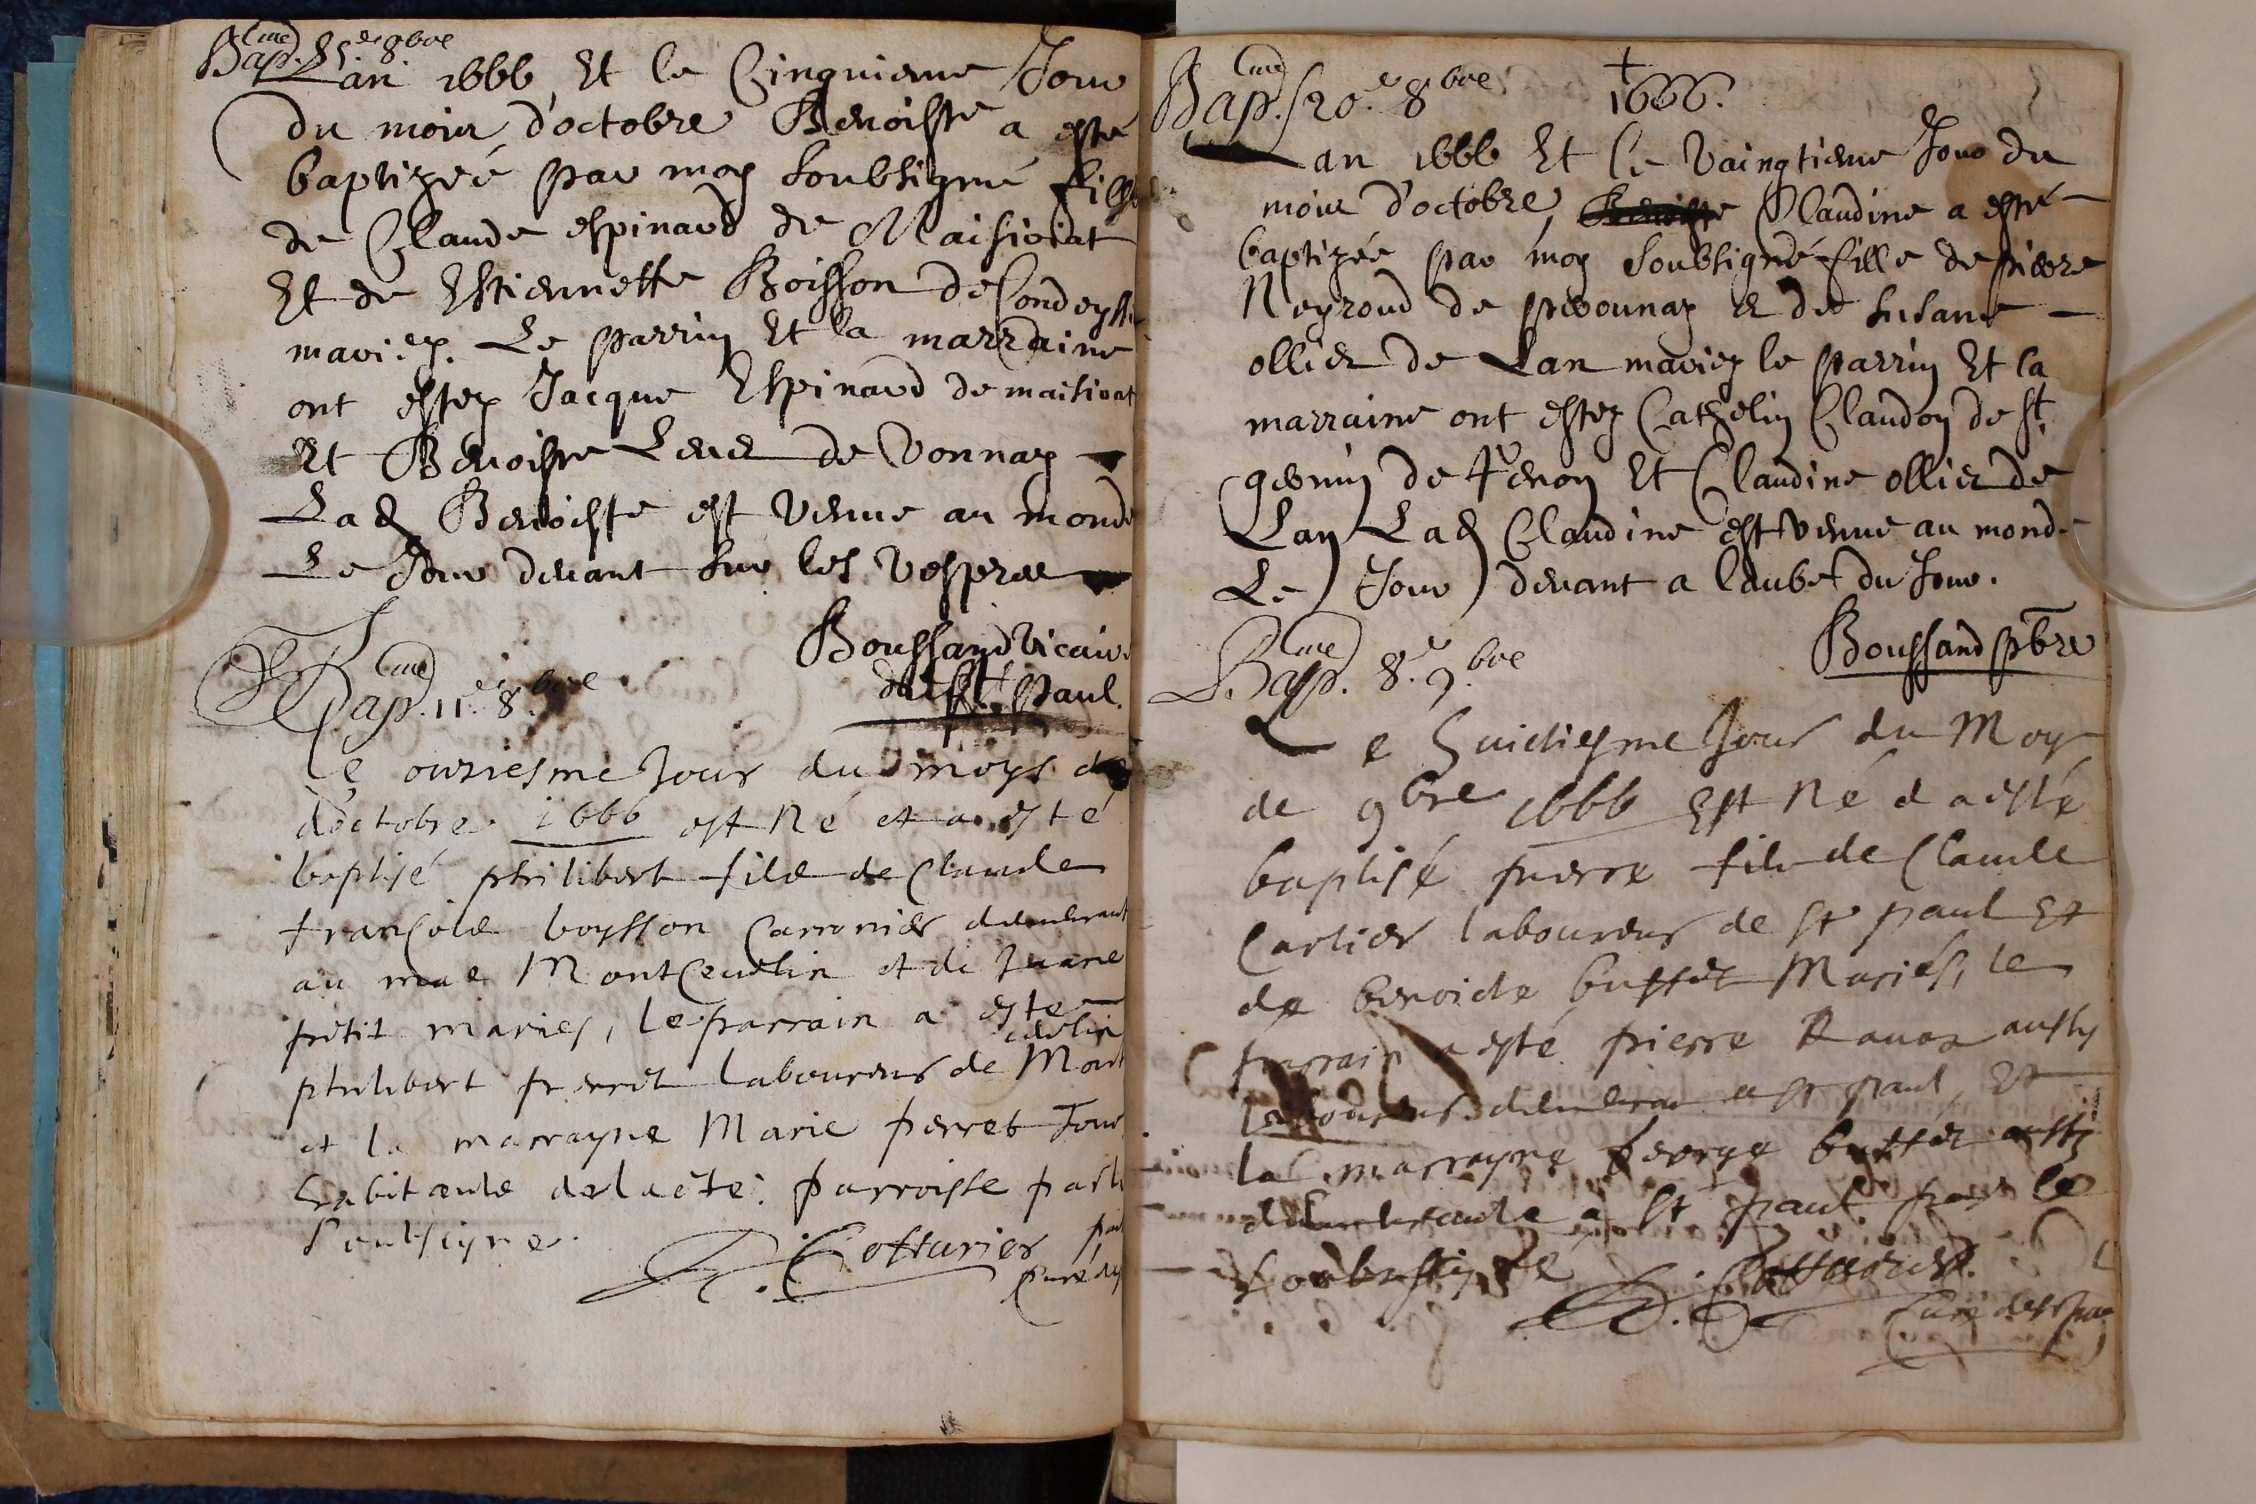 Bap.sme 5e 8bre
Lan 1666 Et le Cinquieme Jour
du mois d'octobre Benoiste a esté
baptizée par moy soubsigné fille
de Claude espinard de Maisiriat
Et de Estiennette Boisson de Condeyssia
mariez. Le parrin Et la marraine
ont estez Jacque Espinard de maisiriat
Et Benoiste de Vonnaz
Lad Benoiste est venue au monde
Le Jour devant sur les vespres
Boussand vicaire
de St paul.
Bap.sme 11e 8bre
Le onziesme Jour du moys
d'octobre 1666 est Né et a esté
baptisé philibert fils de Claude
françois boysson Carronier demeurant
au mas et de Jeane
petit mariés, le parrain a esté
philibert perret laboureur de Mont
et la marrayne Marie perret Tous
habitants de la dte parroisse par le
soubsigné.
Cotturier
1666.
Bap.sme 20e 8bre
Lan 1666 Et le vaingtieme Jour du
mois d'octobre Claudine a esté
baptizée par moy soubsigné fille de pierre
Neyroud de provunaz et de Susane
ollier de Lan mariez le parrin Et la
marraine ont estez Cathelin Claudon de St
germin de Et Claudine ollier de
Lan Lad Claudine est venue au monde
Le Jour devant a laube du Jour.
Boussand pbre
Bap.sme 8e 9bre
Le huictiesme Jour du Moys
de 9bre 1666 Est Né et a esté
baptisé pierre fils de Claude
Cartier laboureur de St paul Et
de benoiste buffet Mariés, le
parrain a esté pierre Ravaz aussy
laboureur demeurant a St paul, Et
la marrayne buffet aussy
demeurante a St paul par le
soubsigné
Cotturier.
Curé de St paul